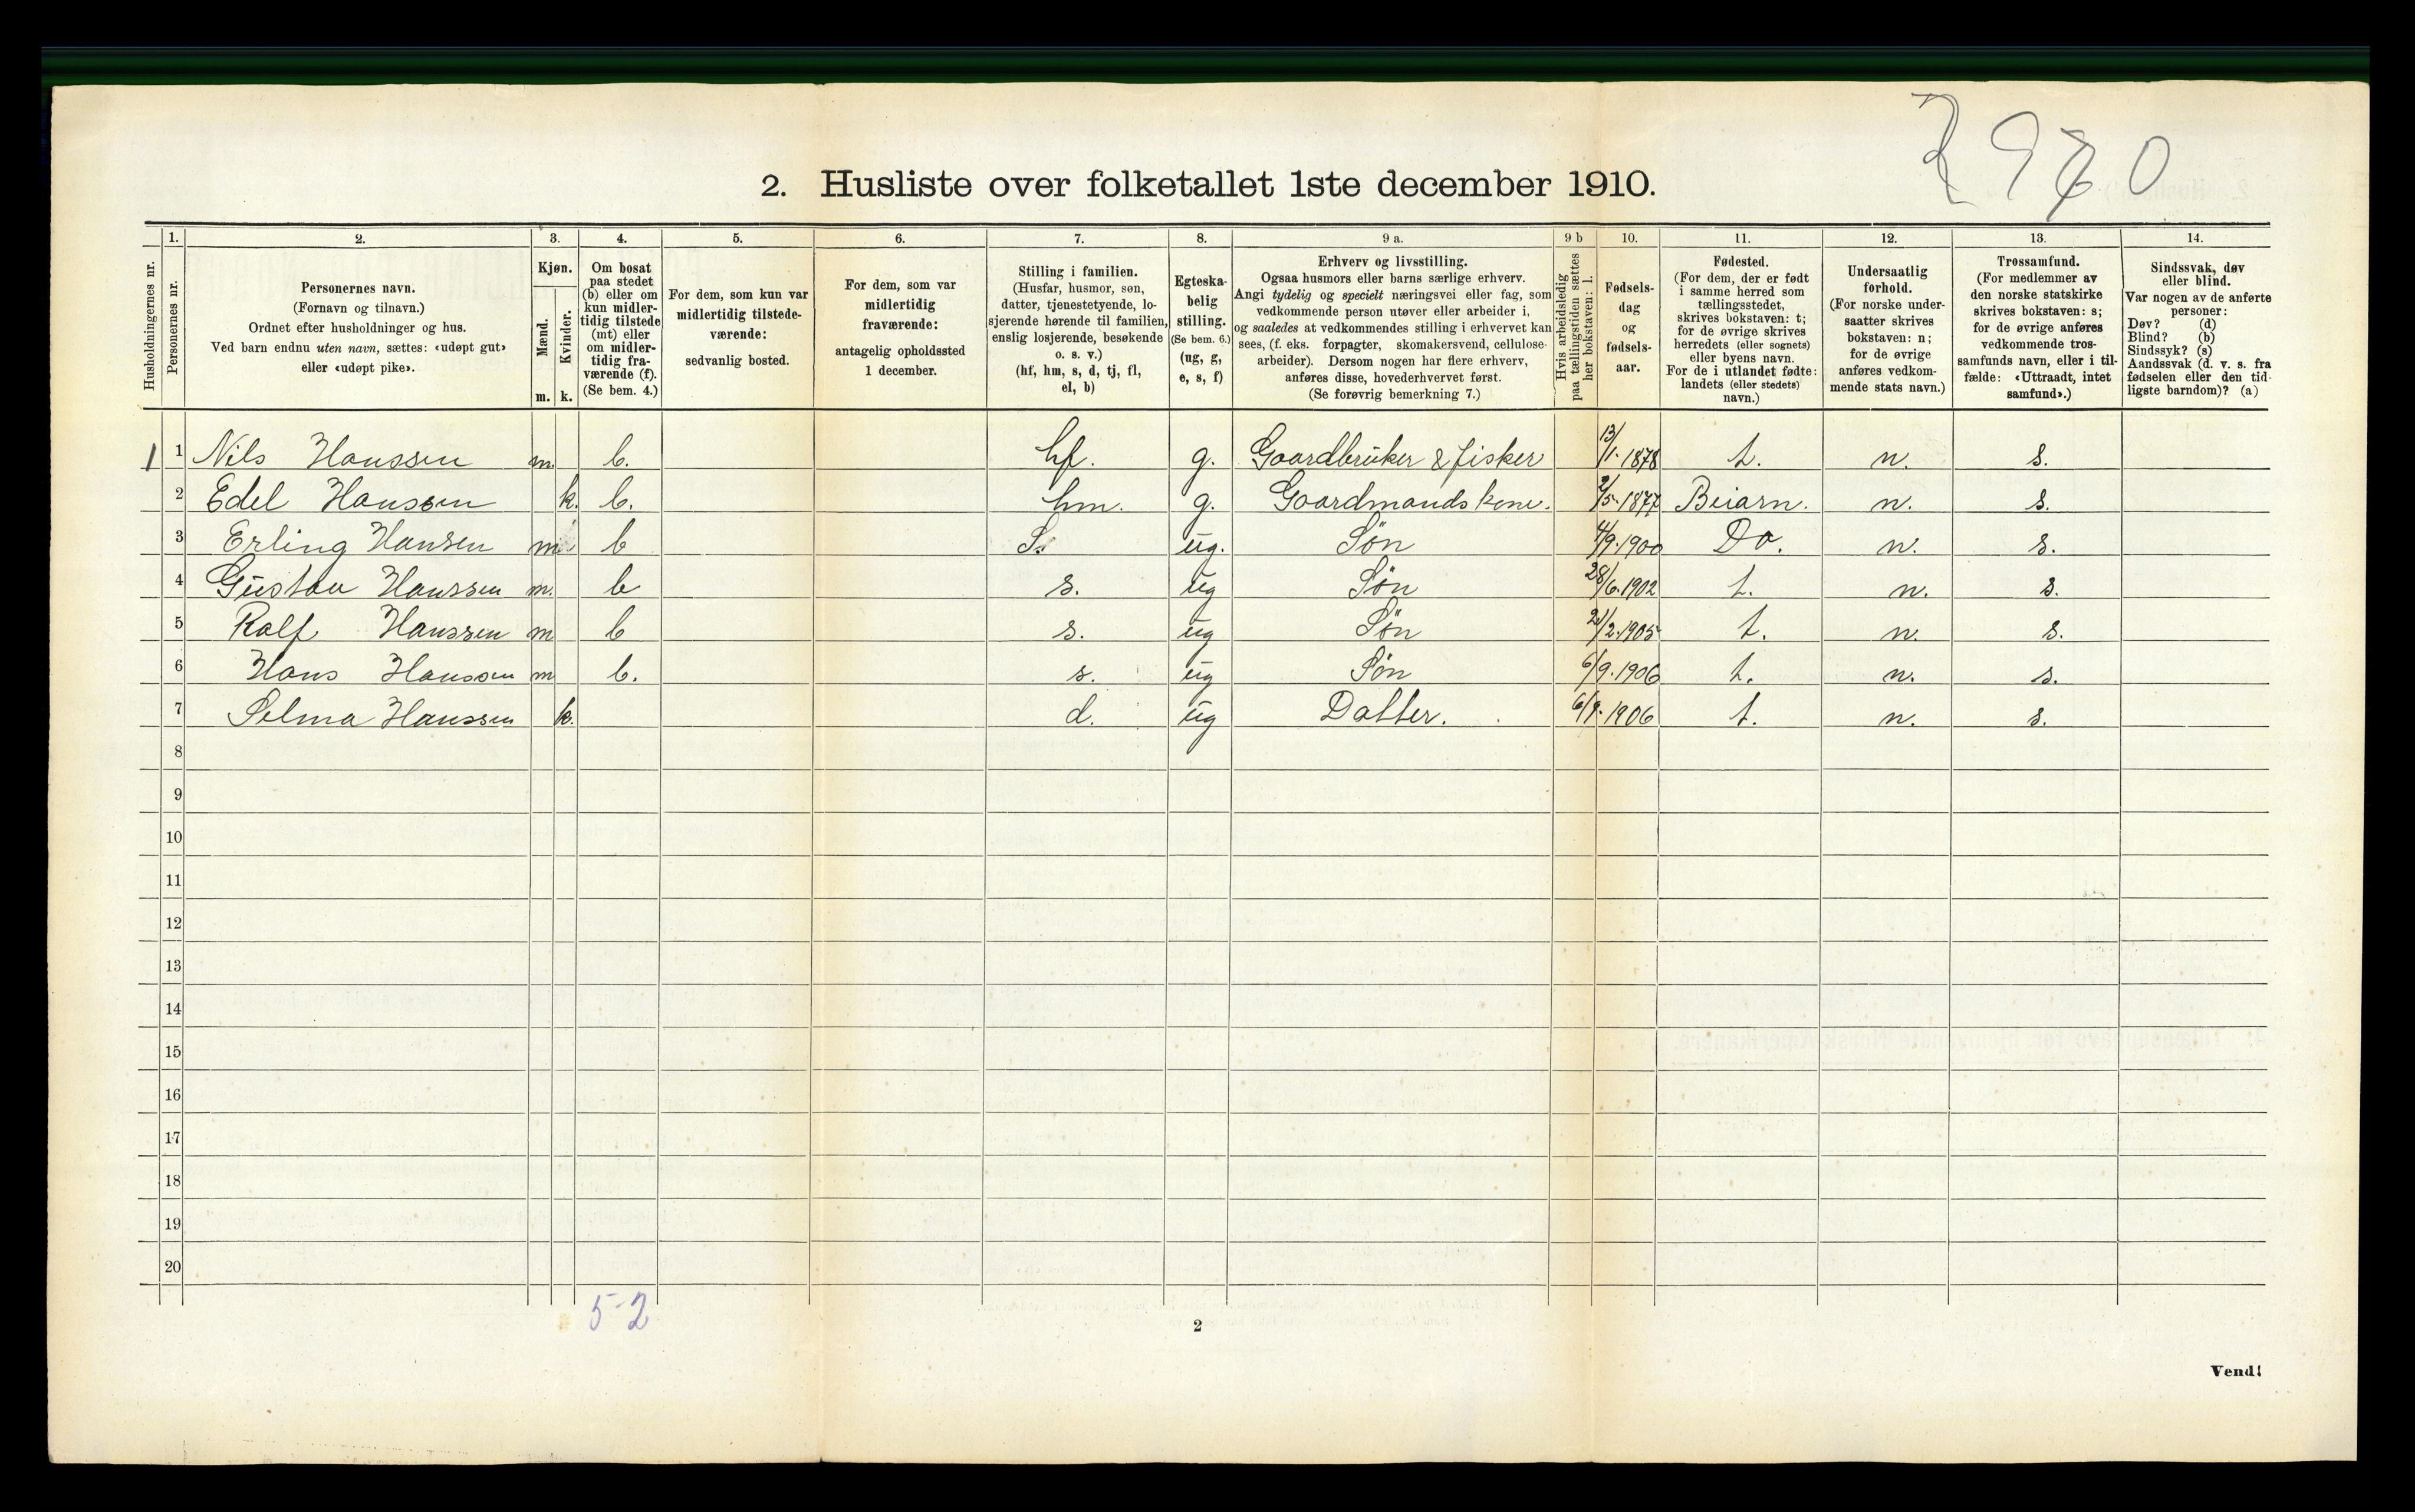 2. Husliste over folketallet 1ste december 1910.
Husholdningernes nr.
1. 2. 3. 4. 5. 6. 7. 8. 9 a. 9 b 10. 11. 12. 13. 14.
Personernes nr.
Personernes navn.
(Fornavn og tilnavn.)
Ordnet efter husholdninger og hus.
Ved barn endnu uten navn, sættes: «udøpt gut»
eller «udøpt pike».
Kjøn.
Mænd.
Kvinder.
m. k.
Om bosat
paa stedet
(b) eller om
kun midler-
tidig tilstede
(mt) eller
om midler-
tidig fra-
værende (f).
(Se bem. 4.)
For dem, som kun var
midlertidig tilstede-
værende:
sedvanlig bosted.
For dem, som var
midlertidig
fraværende:
antagelig opholdssted
1 december.
Stilling i familien.
(Husfar, husmor, søn,
datter, tjenestetyende, lo-
sjerende hørende til familien,
enslig losjerende, besøkende
o. s. v.)
(hf, hm, s, d, tj, fl,
el, b)
Egteska-
belig
stilling.
(Se bem. 6.)
(ug, g,
e, s, f)
Erhverv og livsstilling.
Ogsaa husmors eller barns særlige erhverv.
Angi tydelig og specielt næringsvei eller fag, som
vedkommende person utøver eller arbeider i,
og saaledes at vedkommendes stilling i erhvervet kan
sees, (f. eks. forpagter, skomakersvend, cellulose-
arbeider). Dersom nogen har flere erhverv,
anføres disse, hovederhvervet først.
(Se forøvrig bemerkning 7.)
Hvis arbeidsledig
paa tællingstiden sættes
her bokstaven: l.
Fødsels-
dag
og
fødsels-
aar.
Fødested.
(For dem, der er født
i samme herred som
tællingsstedet,
skrives bokstaven: t;
for de øvrige skrives
herredets (eller sognets)
eller byens navn.
For de i utlandet fødte:
landets (eller stedets)
navn.)
Undersaatlig
forhold.
(For norske under-
saatter skrives
bokstaven: n;
for de øvrige
anføres vedkom-
mende stats navn.)
Trossamfund.
(For medlemmer av
den norske statskirke
skrives bokstaven: s;
for de øvrige anføres
vedkommende tros-
samfunds navn, eller i til-
fælde: «Uttraadt, intet
samfund».)
Sindssvak, døv
eller blind.
Var nogen av de anførte
personer:
Døv? (d)
Blind? (b)
Sindssyk? (s)
Aandssvak (d. v. s. fra
fødselen eller den tid-
ligste barndom)? (a)
1 1 Nils Hanssen m. b. hf. g. Gaardbruker & fisker 13/1 1878 t. n. s.
2 Edel Hanssen k. b. hm. g. Gaardmandskone. 2/5 1877 Beiarn. n. s.
3 Erling Hansen m b S. ug. Søn 4/9 1900 Do. n. s.
4 Gustav Hanssen m. b s. ug Søn 28/6 1902 t. n. s.
5 Ralf Hanssen m b s. ug Søn 21/2 1905 t. n. s.
6 Hans Hanssen m b. s. ug Søn 6/9 1906 t. n. s.
7 Selma Hanssen k. d. ug Datter. 6/9 1906 t. n. s.
8
9
10
11
12
13
14
15
16
17
18
19
20
5-2
2
Vend!